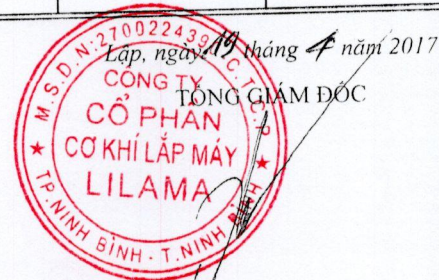 Lập, ngày 19 tháng 4 năm 2017
TỔNG GIÁM ĐỐC
M.S.D.N:2700224390-C.T.C.P
CÔNG TY
CỔ PHẦN
CƠ KHÍ LẮP MÁY
LILAMA
TP.NINH BÌNH - T.NINH BÌNH